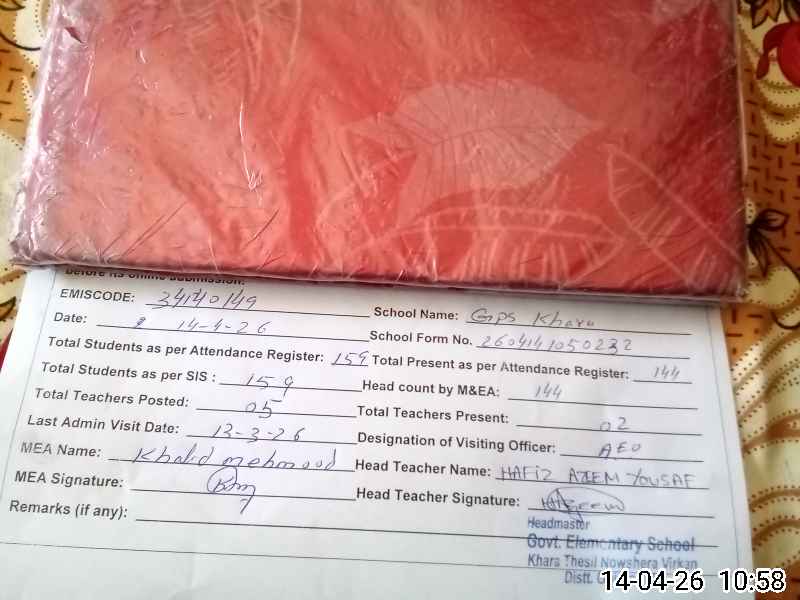 Before its online submission.
EMISCODE: 34140149 School Name: Gps Khara
Date: 14-4-26 School Form No. 2604141050232
Total Students as per Attendance Register: 159 Total Present as per Attendance Register: 144
Total Students as per SIS : 159 Head count by M&EA: 144
Total Teachers Posted: 05 Total Teachers Present: 02
Last Admin Visit Date: 13-3-26 Designation of Visiting Officer: AEO
MEA Name: Khalid mehmood Head Teacher Name: HAFIZ AZEEM YOUSAF
MEA Signature: Head Teacher Signature:
Remarks (if any):
Headmaster
Govt. Elementary School
Khara Thesil Nowshera Virkan
Distt.
14-04-26 10:58